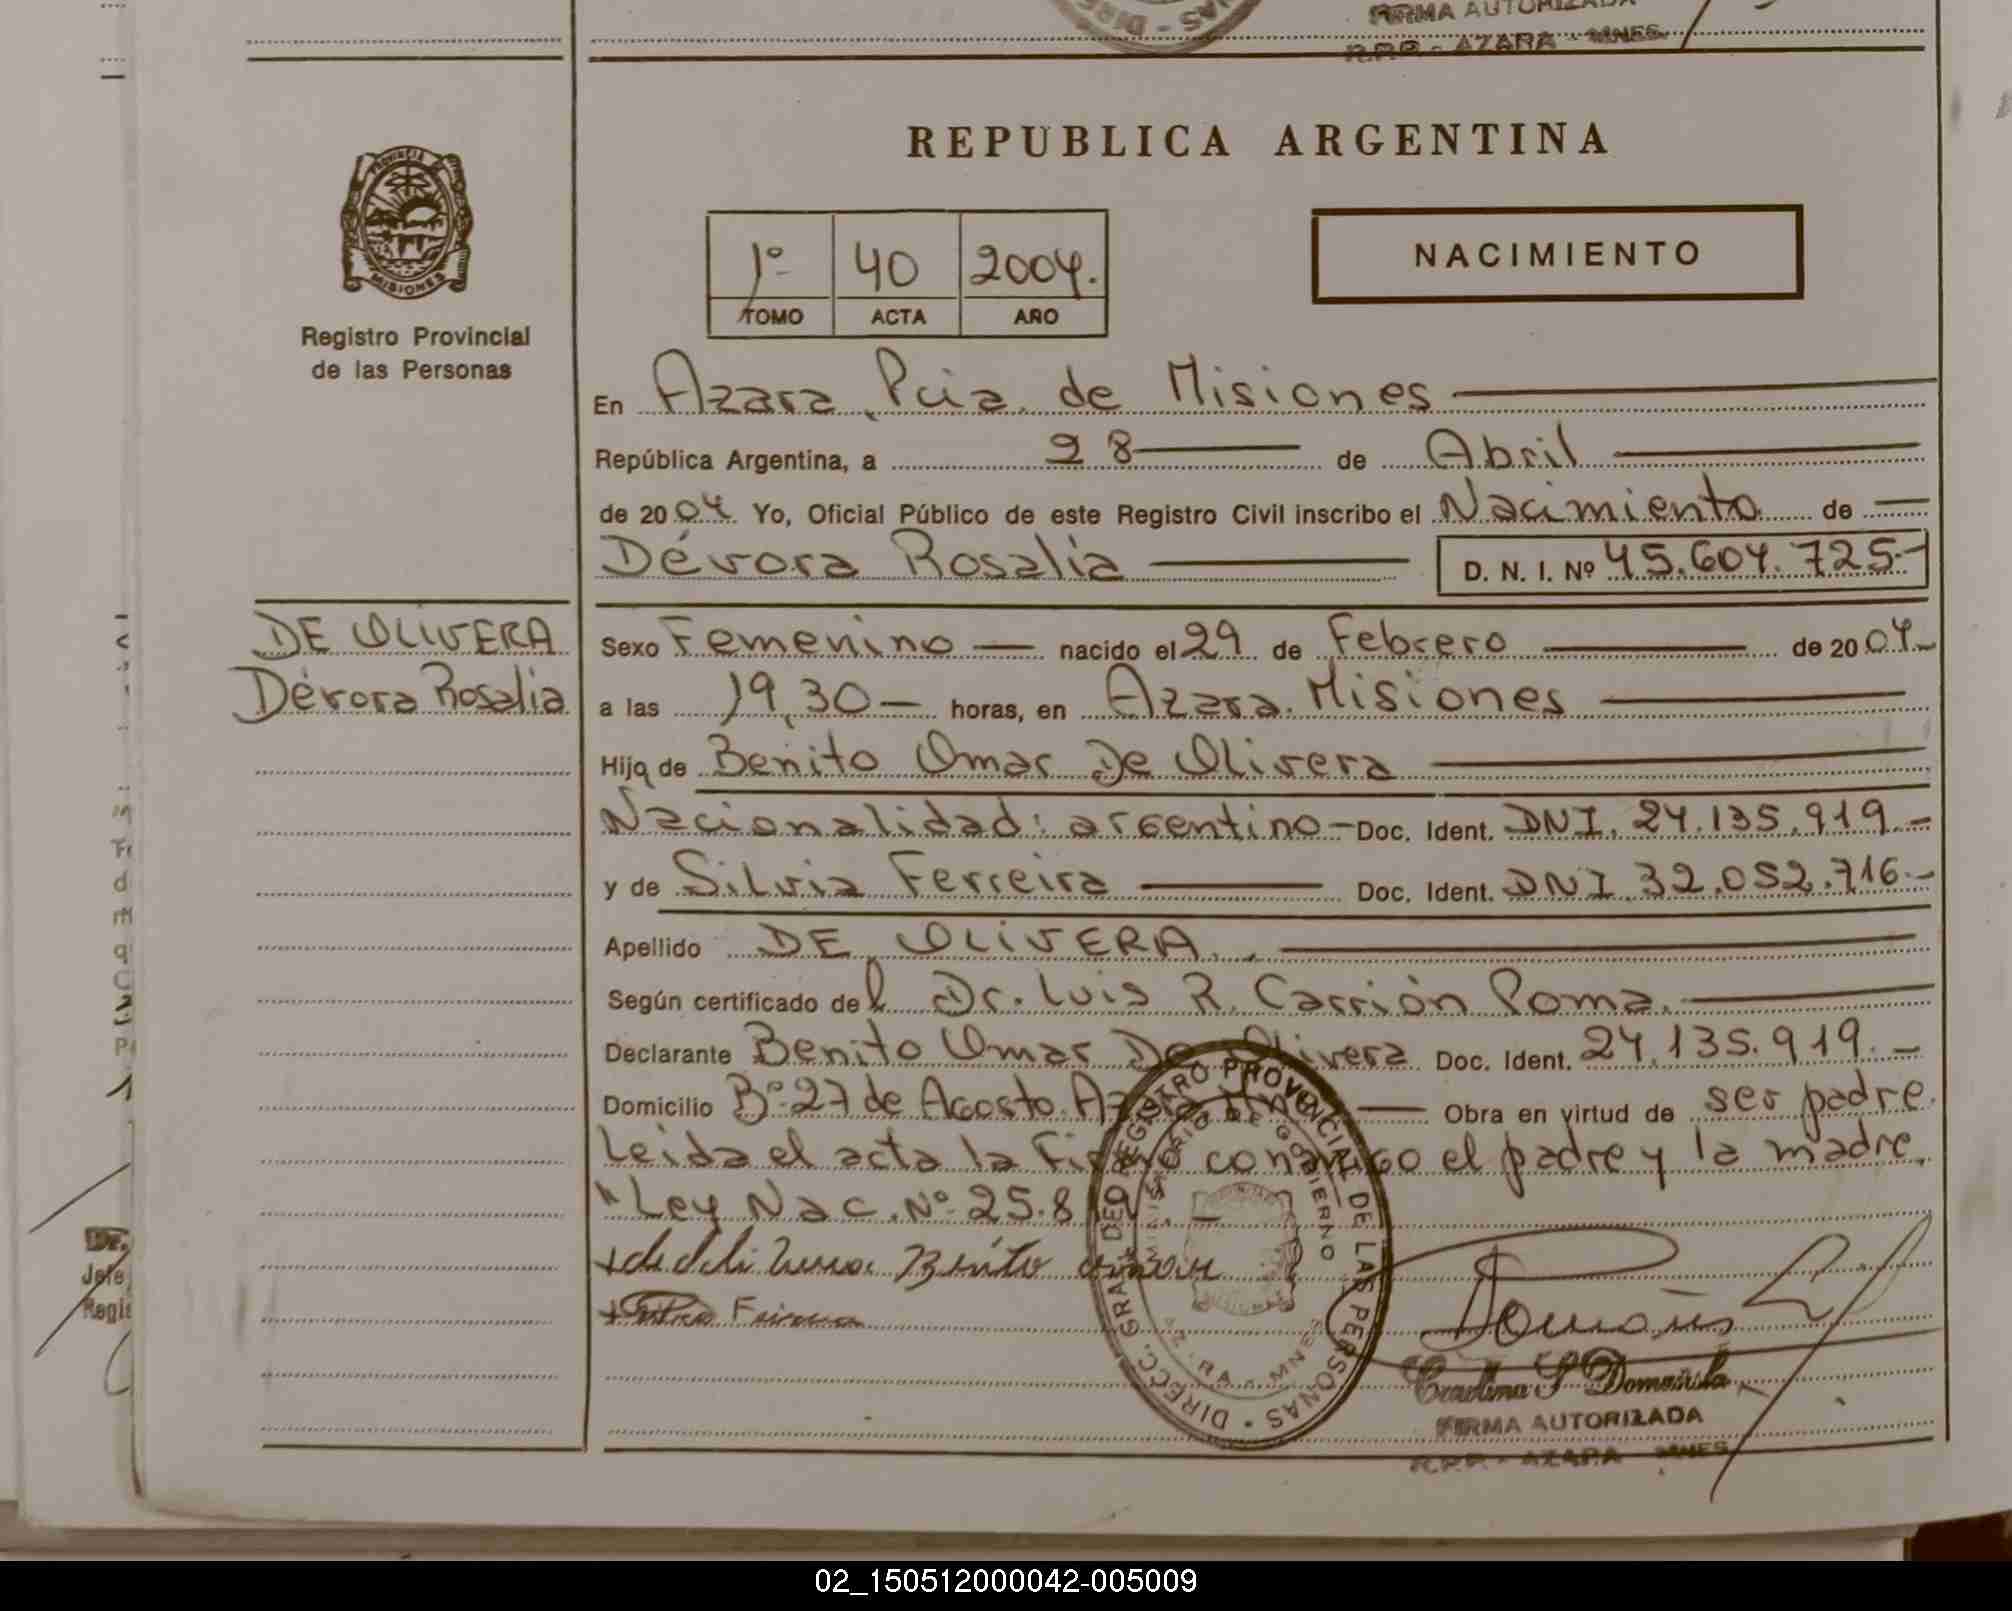 FIRMA AUTORIZADA
R.P.P. - AZARA - MNES.
REPUBLICA ARGENTINA
PROVINCIA DE
MISIONES
Registro Provincial
de las Personas
1º 40 2004.
TOMO ACTA AÑO
NACIMIENTO
En Azara, Pcia. de Misiones
República Argentina, a 28 de Abril
de 2004. Yo, Oficial Público de este Registro Civil inscribo el Nacimiento de
Dévora Rosalia D. N. I. Nº 45.604.725-
DE OLIVERA
Dévora Rosalia
Sexo Femenino — nacido el 29 de Febrero de 2004-
a las 19,30 — horas, en Azara. Misiones
Hijo de Benito Omar De Olivera
Nacionalidad: argentino - Doc. Ident. DNI. 24.135.919.-
y de Silvia Ferreira Doc. Ident. DNI 32.052.716.-
Apellido DE OLIVERA.
Según certificado del Dr. Luis R. Carrión Poma.
Declarante Benito Omar De Olivera Doc. Ident. 24.135.919.-
Domicilio Bº 27 de Agosto. Azara Mnes — Obra en virtud de ser padre.
Leida el acta la Firma conmigo el padre y la madre.
"Ley Nac. Nº 25.819. —
Benito omar
DIREC. GRAL. DEL REGISTRO PROVINCIAL DE LAS PERSONAS
MINISTERIO DE GOBIERNO
AZARA - MNES
FIRMA AUTORIZADA
R.P.P. - AZARA - MNES
02_150512000042-005009